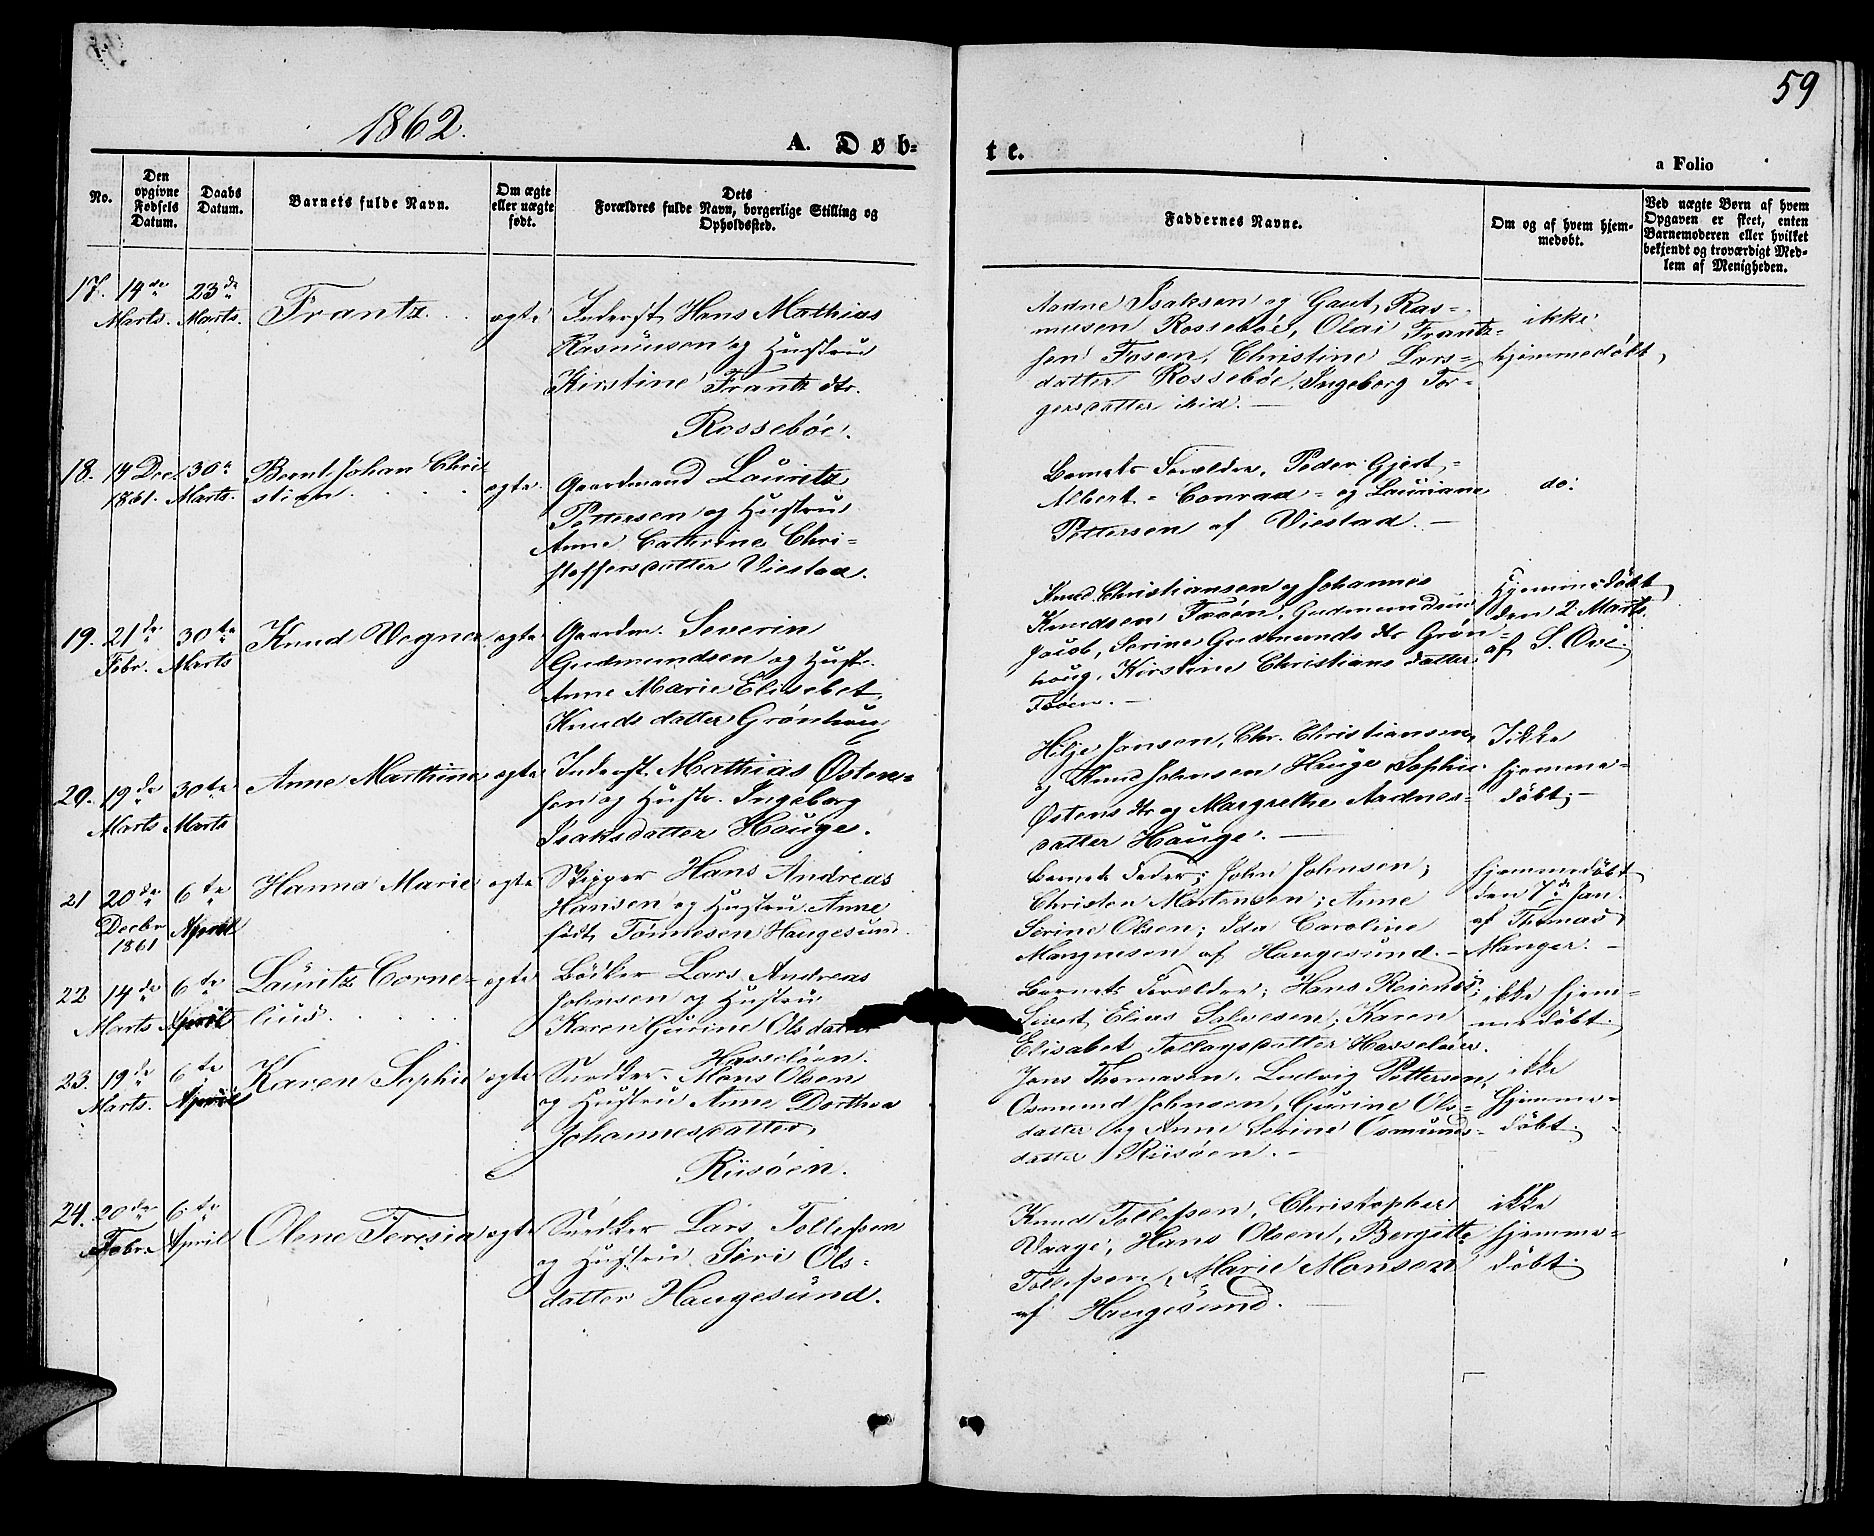 59
1862.
A. Døb-
te.
a Folio
No.
Den opgivne Fødsels Datum.
Daabs Datum.
Barnets fulde Navn.
Om ægte eller uægte født.
Dets
Forældres fulde Navn, borgerlige Stilling og Opholdssted.
Faddernes Navne.
Om og af hvem hjemmedøbt.
Ved uægte Børn af hvem Opgaven er skeet, enten Barnemoderen eller hvilket bekjendt og troværdigt Medlem af Menigheden.
17.
19de
Marts.
23de
Marts.
Frantz
ægte
Inderst Hans Mathias
Rasmusen og Hustru
Kirstine Frantz dtr.
Rossebøe.
Aadne Isaksen og Gaut Ras-
musen Rossebøe, Olai Frantz-
sen Fosen, Christine Lars-
datter Rossebøe, Ingeborg Tor-
gersdatter ibid. —
ikke
hjemmedøbt,
18.
14 Dec.
1861.
30te
Marts.
Bernt Johan Chri-
stian
ægte.
Gaardmand Lauritz
Pettersen og Hustru
Anne Cathrine Chri-
stoffersdatter Viestad.
Barnets Forældre, Peder- Gjert-,
Albert- Conrad- og Lauriane
Pettersen af Viestad. —
do:
19.
21de
Febr.
30te
Marts
Knud Vegner
ægte
Gaardm. Severin
Gudmundsen og Hustr.
Anne Marie Elisebet
Knudsdatter Grønhoug
Knud Christiansen og Johannes
Knudsen Fæøen, Gudmund
Jacob, Serine Gudmunds dtr Grøn-
houg, Kirstine Christiansdatter
Fæøen. —
Hjemmedøbt
den 2 Marts
af S. Ove.
20.
19de
Marts
30te
Marts
Anne Marthine
ægte
Inderst Mathias Østen-
sen og Hustr. Ingeborg
Isaksdatter Hauge.
Hilje Jansen, Chr. Christiansen,
og Knud Johnsen Hauge, Sophie
Østens dtr og Margrethe Aadnes-
datter Hauge. —
Ikke
hjemme-
døbt; —
21
20de
Decbr
1861
6te
April
Hanna Marie
ægte
Skipper Hans Andreas
Hansen og Hustru Anne
født Tønnesen Haugesund.
Barnets Fader; John Johnsen;
Christen Mortensen; Anne
Serine Olsen; Ida Caroline
Mangnesen af Haugesund. —
hjemmedøbt
den 7de Jan.
af Thomas
Manger. —
22
14de
Marts
6te
April
Lauritz Corne-
lius
ægte
Bødker Lars Andreas
Johnsen og Hustru
Karen Gurine Olsdatter
Hasseløen.
Barnets Forældre; Hans Reiersd;
Sivert Elius Salvesen; Karen
Elisabet Tollagsdatter Hasseløen.
ikke hjem-
medøbt.
23.
19de
Marts.
6te
April
Karen Sophie
ægte
Snedker Mons Olsen
og Hustru Anne Dorthea
Johannesdatter
Riisøen.
Jens Thomasen, Ludvig Pettersen,
Osmund Johnsen, Gurine Ols-
datter og Anne Serine Osmunds-
datter Riisøen. —
ikke
hjemme-
døbt.
24.
20de
Febr.
6te
April
Olene Teresia
ægte
Snedker Lars Tollefsen
og Hustru Siri Ols-
datter Haugesund.
Knud Tollefsen, Christopher
Vaage, Hans Olsen, Bergitte
Tollefsen, Marie Monsen
af Haugesund. —
ikke
hjemme-
døbt